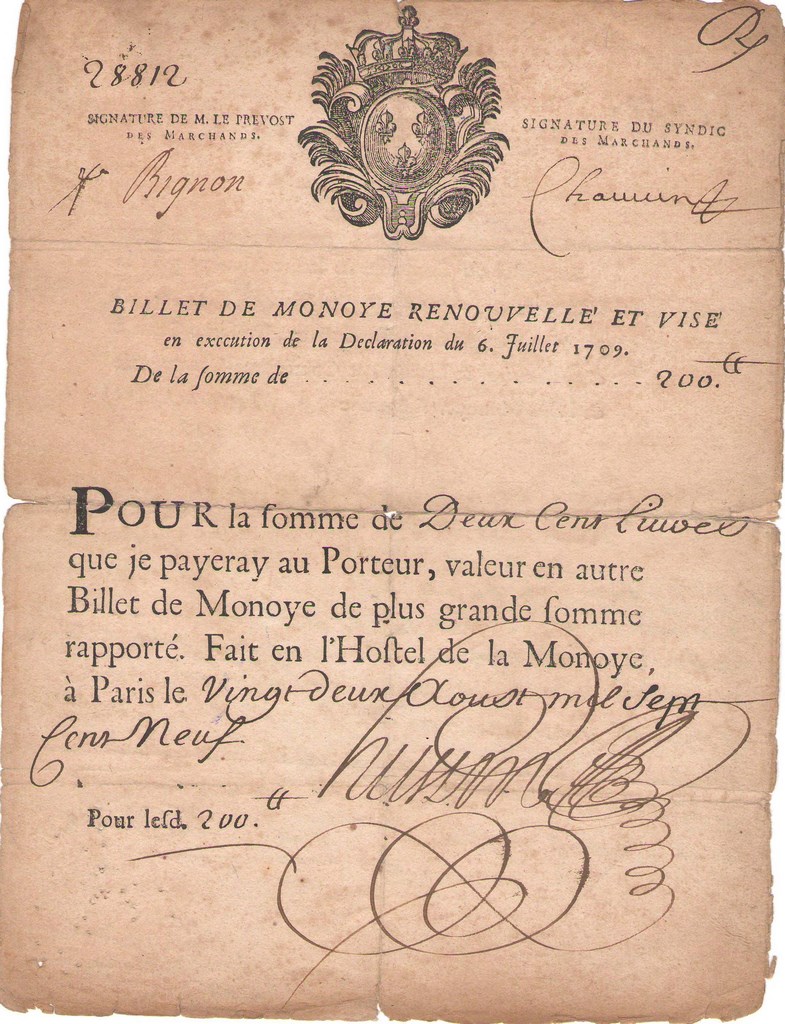 28812
SIGNATURE DE M. LE PREVOST
DES MARCHANDS.
Bignon
SIGNATURE DU SYNDIC
DES MARCHANDS.
BILLET DE MONOYE RENOUVELLE' ET VISE'
en execution de la Declaration du 6. Juillet 1709.
De la ſomme de . . . . . . . . . . . . . . . . . 200.
POUR la ſomme de Deux Cent Livres
que je payeray au Porteur, valeur en autre
Billet de Monoye de plus grande ſomme
rapporté. Fait en l'Hoſtel de la Monoye,
à Paris le Vingt deux Aoust mil Sept
Cent Neuf
Pour leſd. 200.